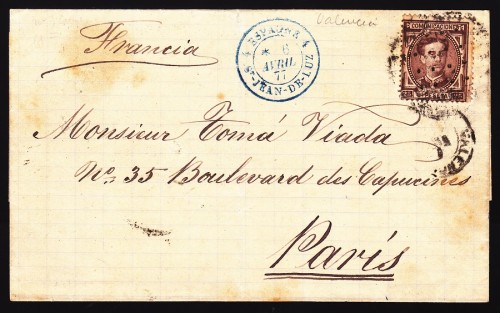 Valencia
COMUNICACIONES
Francia
ESPAGNE
6
AVRIL
77
St-JEAN-DE-LUZ
Monsieur Tomá Viada
No. 35 Boulevard des Capucines
París